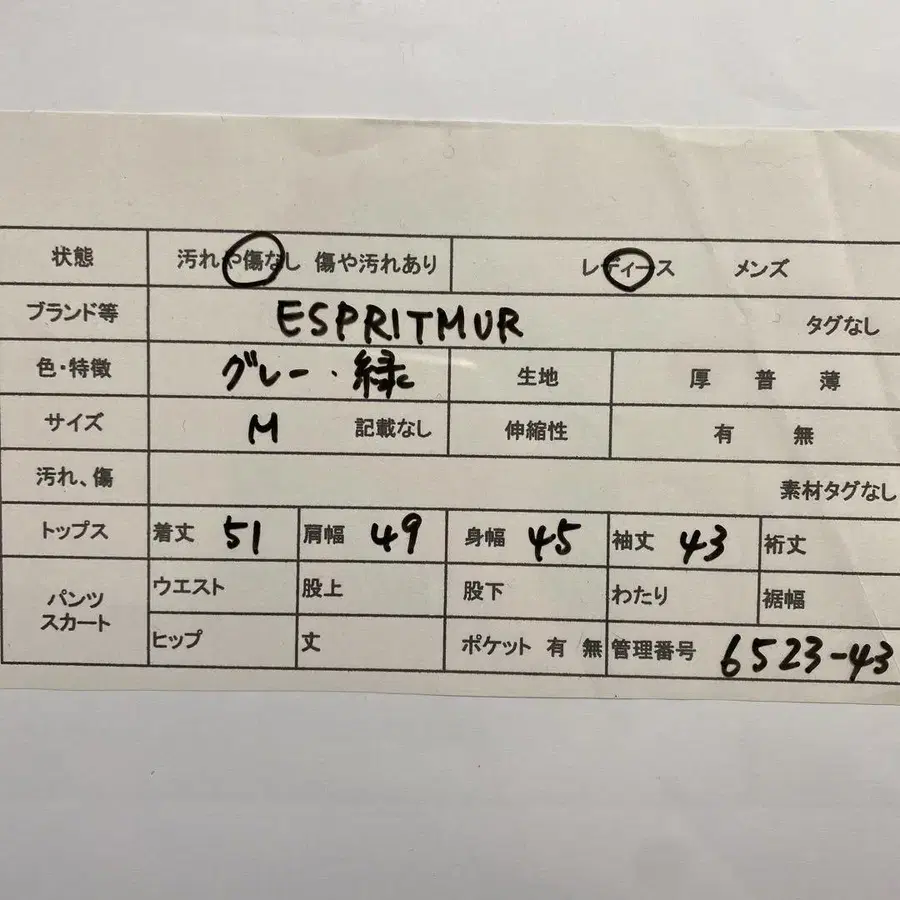 状態 汚れや傷なし 傷や汚れあり レディース メンズ
ブランド等 ESPRITMUR タグなし
色・特徴 グレー・緑 生地 厚 普 薄
サイズ M 記載なし 伸縮性 有 無
汚れ、傷 素材タグなし
トップス 着丈 51 肩幅 49 身幅 45 袖丈 43 裄丈
パンツ スカート ウエスト 股上 股下 わたり 裾幅
ヒップ 丈 ポケット 有 無 管理番号 6523-43